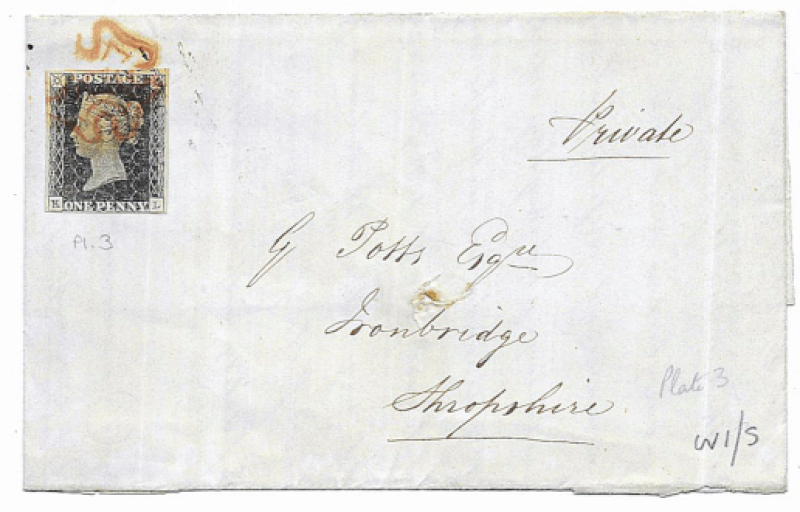 POSTAGE
ONE PENNY
L
Pl. 3
Private
G Potts Esqre
Ironbridge
Shropshire
Plate 3
W1/S